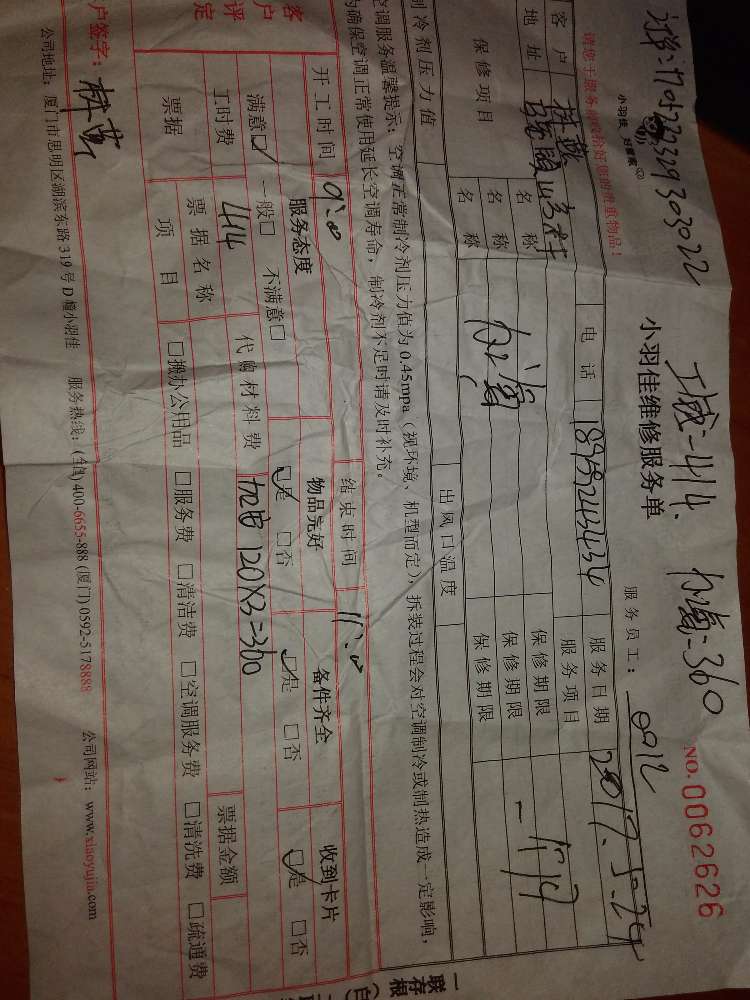 工费:414. 加氟:360
小羽佳 好管家
小羽佳维修服务单
NO.0062626
服务员工:
请您于服务前收拾好您的贵重物品!
客户 电话 服务日期 2017.5.24
地址 服务项目
保修项目 名称 保修期限
名称 加氟 保修期限
名称 保修期限
制冷剂压力值 出风口温度
空调服务温馨提示:空调正常制冷剂压力值为0.45mpa(视环境、机型而定),拆装过程会对空调制冷或制热造成一定影响,
为确保空调正常使用延长空调寿命,制冷剂不足时请及时补充。
开工时间 9:00 结束时间 11:00
客户评定
服务态度 物品完好 备件齐全 收到卡片
满意☑ 一般□ 不满意□ ☑是 □否 ☑是 □否 ☑是 □否
工时费 414 代购材料费 加氟 120X3=360
票据 票据名称 票据金额
项目 □搬办公用品 □服务费 □清洁费 □空调服务费 □清洗费 □疏通费
户签字:
公司地址:厦门市思明区湖滨东路319号D幢小羽佳 服务热线:(全国)400-6655-888 (厦门)0592-5178888 公司网站:www.xiaoyujia.com
一联存根(白)